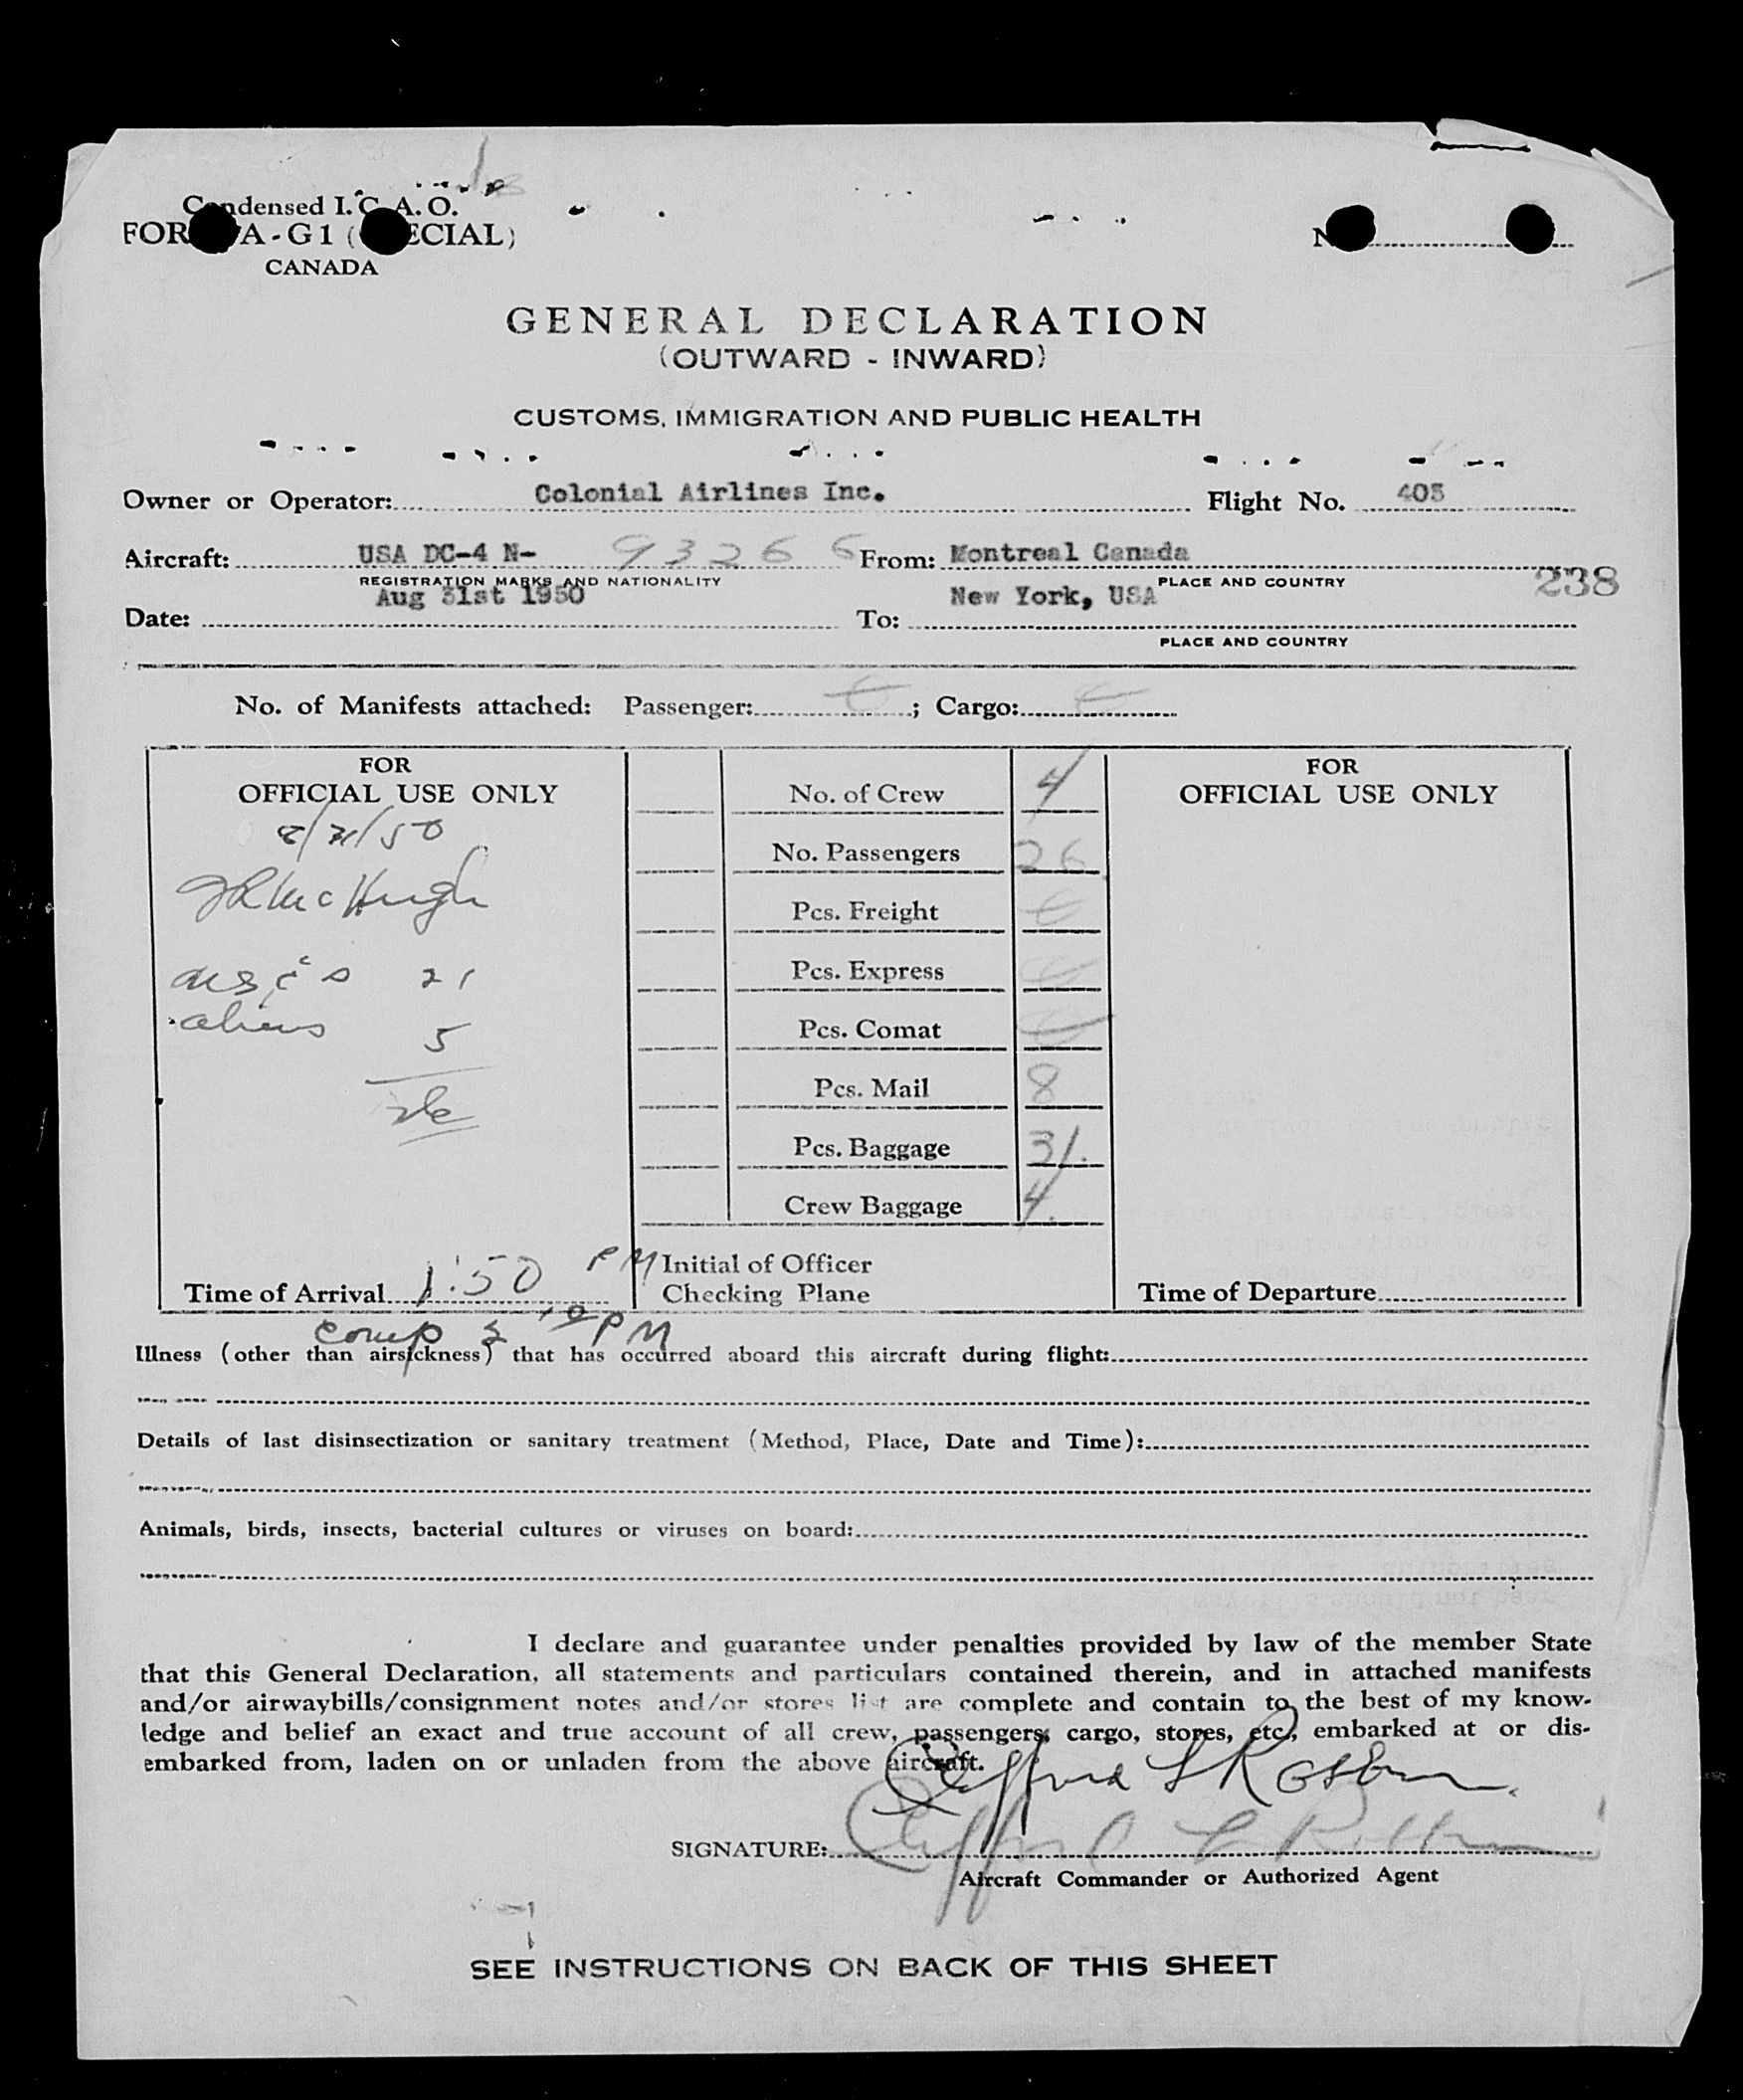 Condensed I.C.A.O.
CANADA
GENERAL DECLARATION
(OUTWARD - INWARD)
CUSTOMS, IMMIGRATION AND PUBLIC HEALTH
Owner or Operator: Colonial Airlines Inc. Flight No. 403
Aircraft: USA DC-4 N- 93266 From: Montreal Canada
REGISTRATION MARKS AND NATIONALITY PLACE AND COUNTRY
238
Date: Aug 31st 1950 To: New York, USA
PLACE AND COUNTRY
No. of Manifests attached: Passenger: ; Cargo:
FOR
OFFICIAL USE ONLY
8/31/50
McHugh
21
aliens 5
26
Time of Arrival 1:50 PM
No. of Crew 4
No. Passengers 26
Pcs. Freight
Pcs. Express
Pcs. Comat
Pcs. Mail 8
Pcs. Baggage 31.
Crew Baggage 4.
Initial of Officer
Checking Plane
FOR
OFFICIAL USE ONLY
Time of Departure
comp PM
Illness (other than airsickness) that has occurred aboard this aircraft during flight:
Details of last disinsectization or sanitary treatment (Method, Place, Date and Time):
Animals, birds, insects, bacterial cultures or viruses on board:
I declare and guarantee under penalties provided by law of the member State
that this General Declaration, all statements and particulars contained therein, and in attached manifests
and/or airwaybills/consignment notes and/or stores list are complete and contain to the best of my know-
ledge and belief an exact and true account of all crew, passengers, cargo, stores, etc., embarked at or dis-
embarked from, laden on or unladen from the above aircraft.
SIGNATURE:
Aircraft Commander or Authorized Agent
SEE INSTRUCTIONS ON BACK OF THIS SHEET